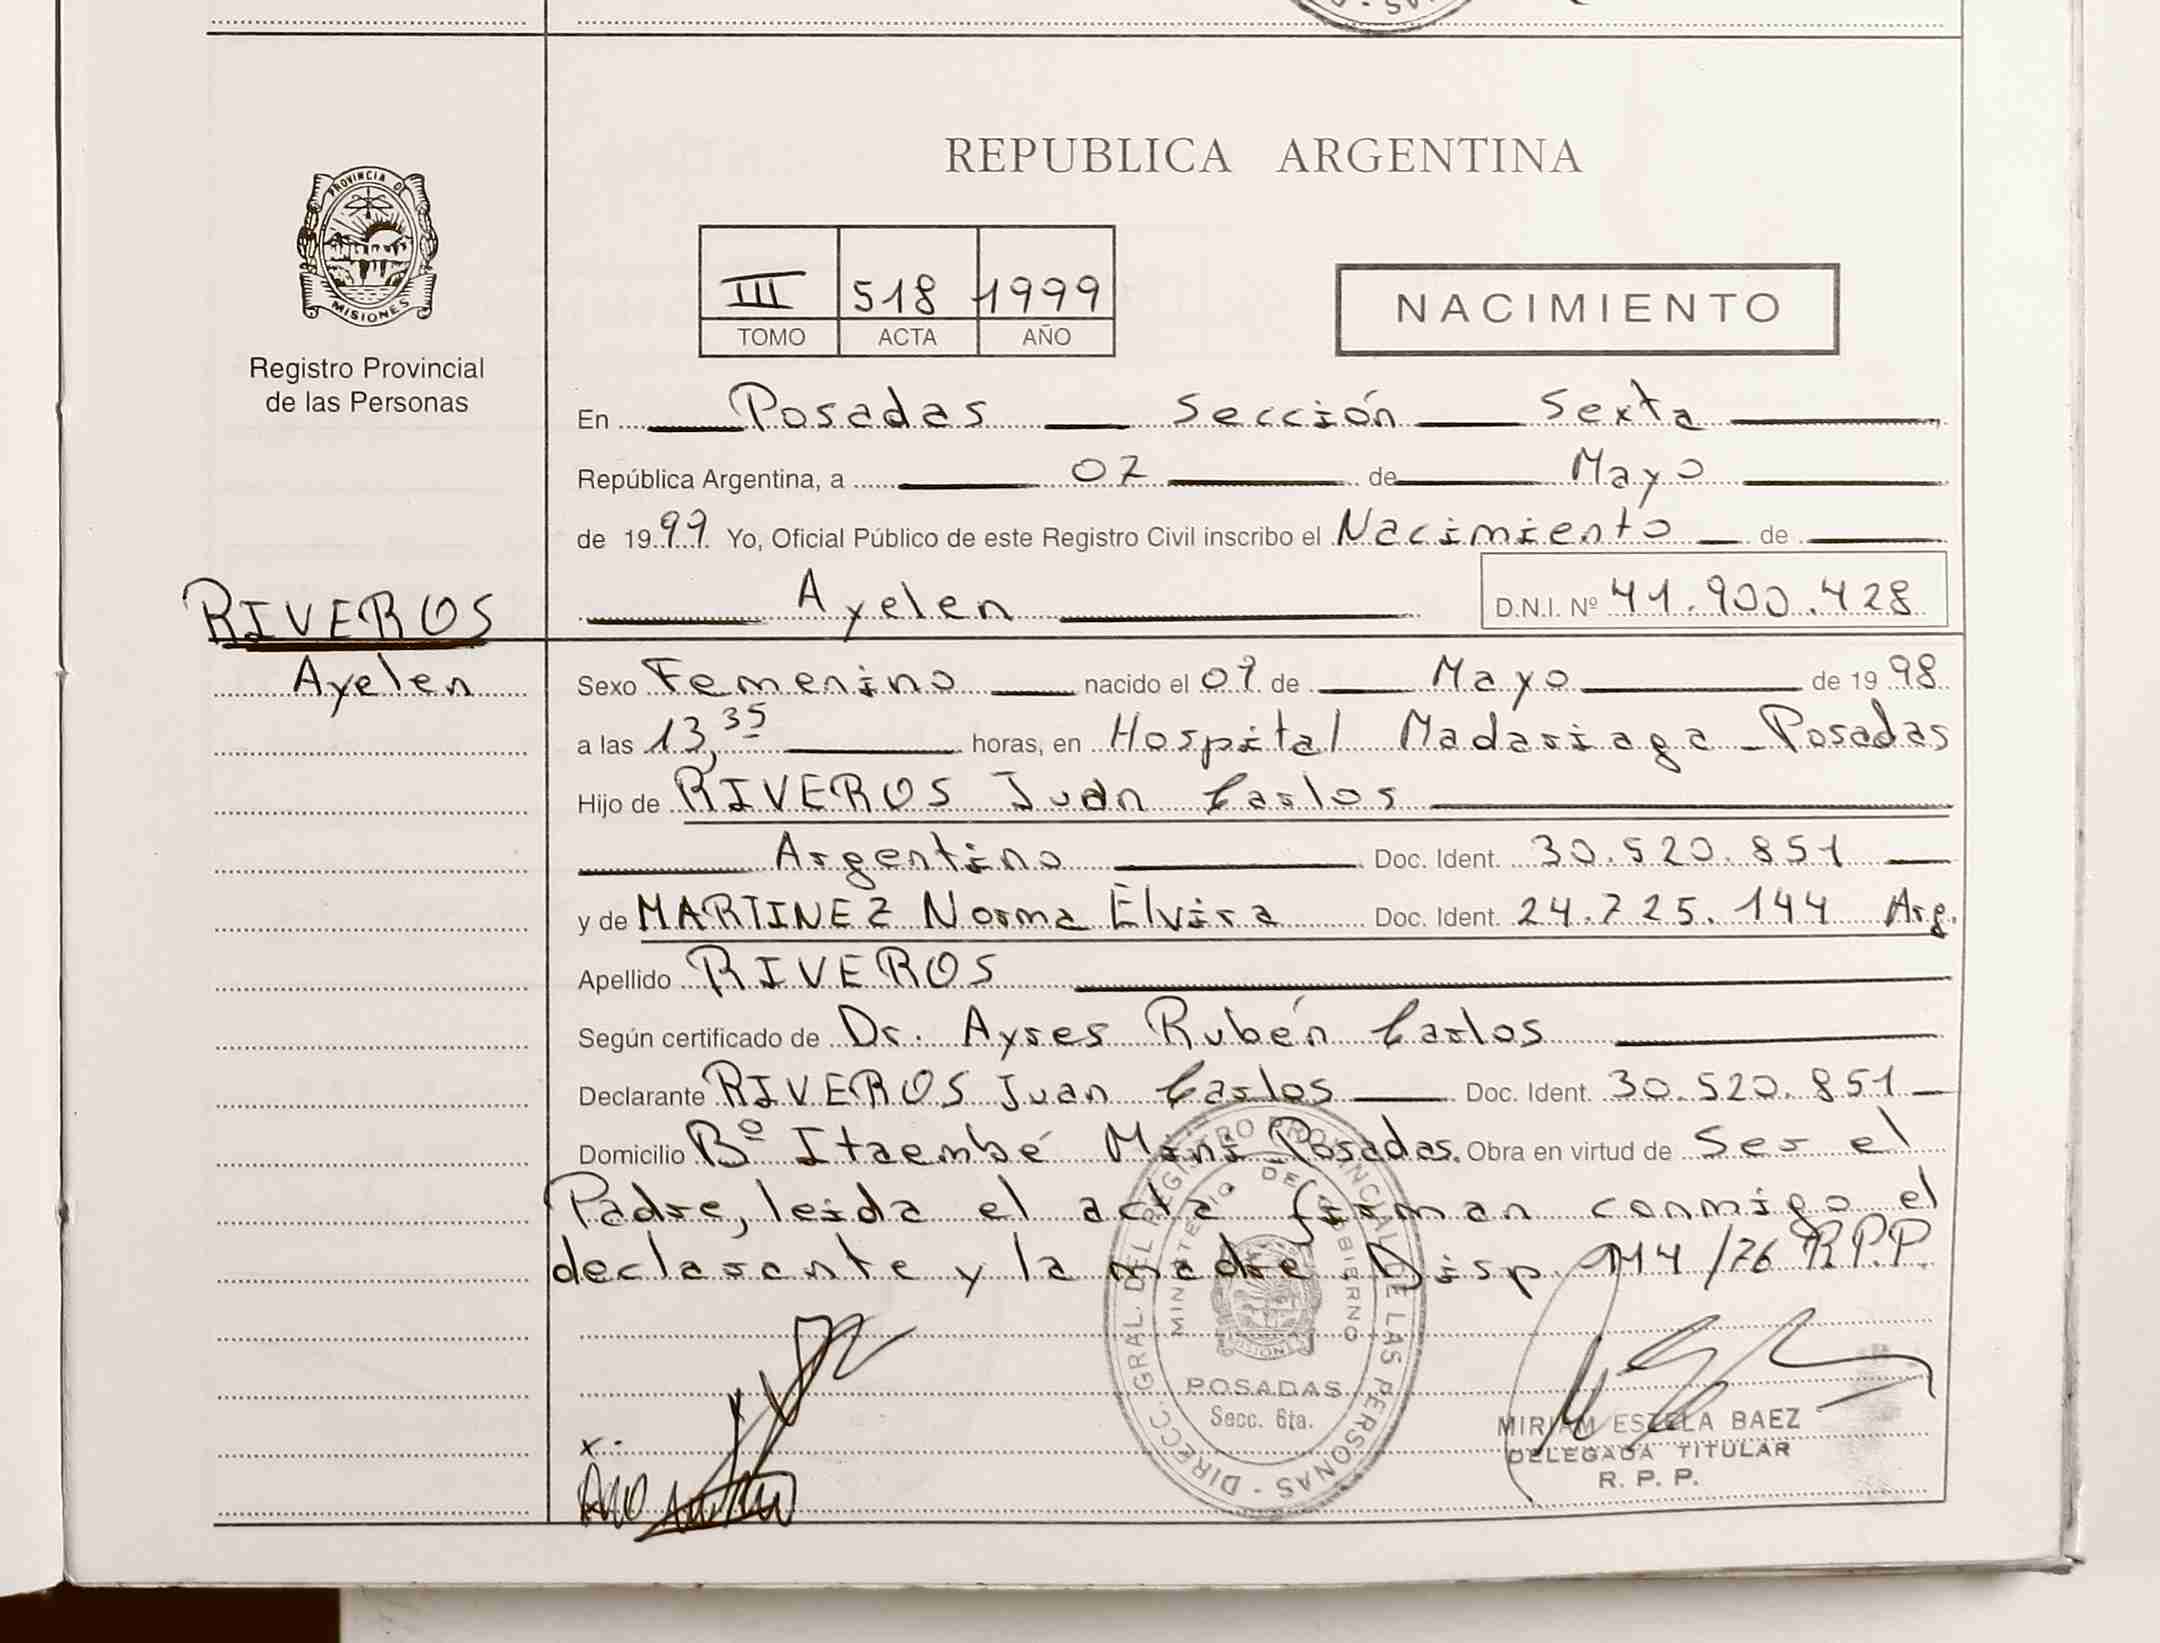 REPUBLICA ARGENTINA
PROVINCIA DE
MISIONES
Registro Provincial
de las Personas
III 518 1999
TOMO ACTA AÑO
NACIMIENTO
En Posadas Sección Sexta
República Argentina, a 07 de Mayo
de 1999 Yo, Oficial Público de este Registro Civil inscribo el Nacimiento de
Ayelen D.N.I. Nº 41.900.428
RIVEROS
Ayelen
Sexo Femenino nacido el 07 de Mayo de 1998
a las 13,35 horas, en Hospital Madariaga - Posadas
Hijo de RIVEROS Juan Carlos
Argentino Doc. Ident. 30.520.851
y de MARTINEZ Norma Elvira Doc. Ident. 24.725.144 Arg.
Apellido RIVEROS
Según certificado de Dr. Ayres Rubén Carlos
Declarante RIVEROS Juan Carlos Doc. Ident. 30.520.851
Domicilio Bº Itaembé Miní Posadas. Obra en virtud de Ser el
Padre, leida el acta firman conmigo el
declarante y la madre. Disp. 114/76 R.P.P.
DIRECC. GRAL. DEL REGISTRO PROVINCIAL DE LAS PERSONAS
MINISTERIO DE GOBIERNO
POSADAS
Secc. 6ta.
MIRIAM ESTELA BAEZ
DELEGADA TITULAR
R. P. P.